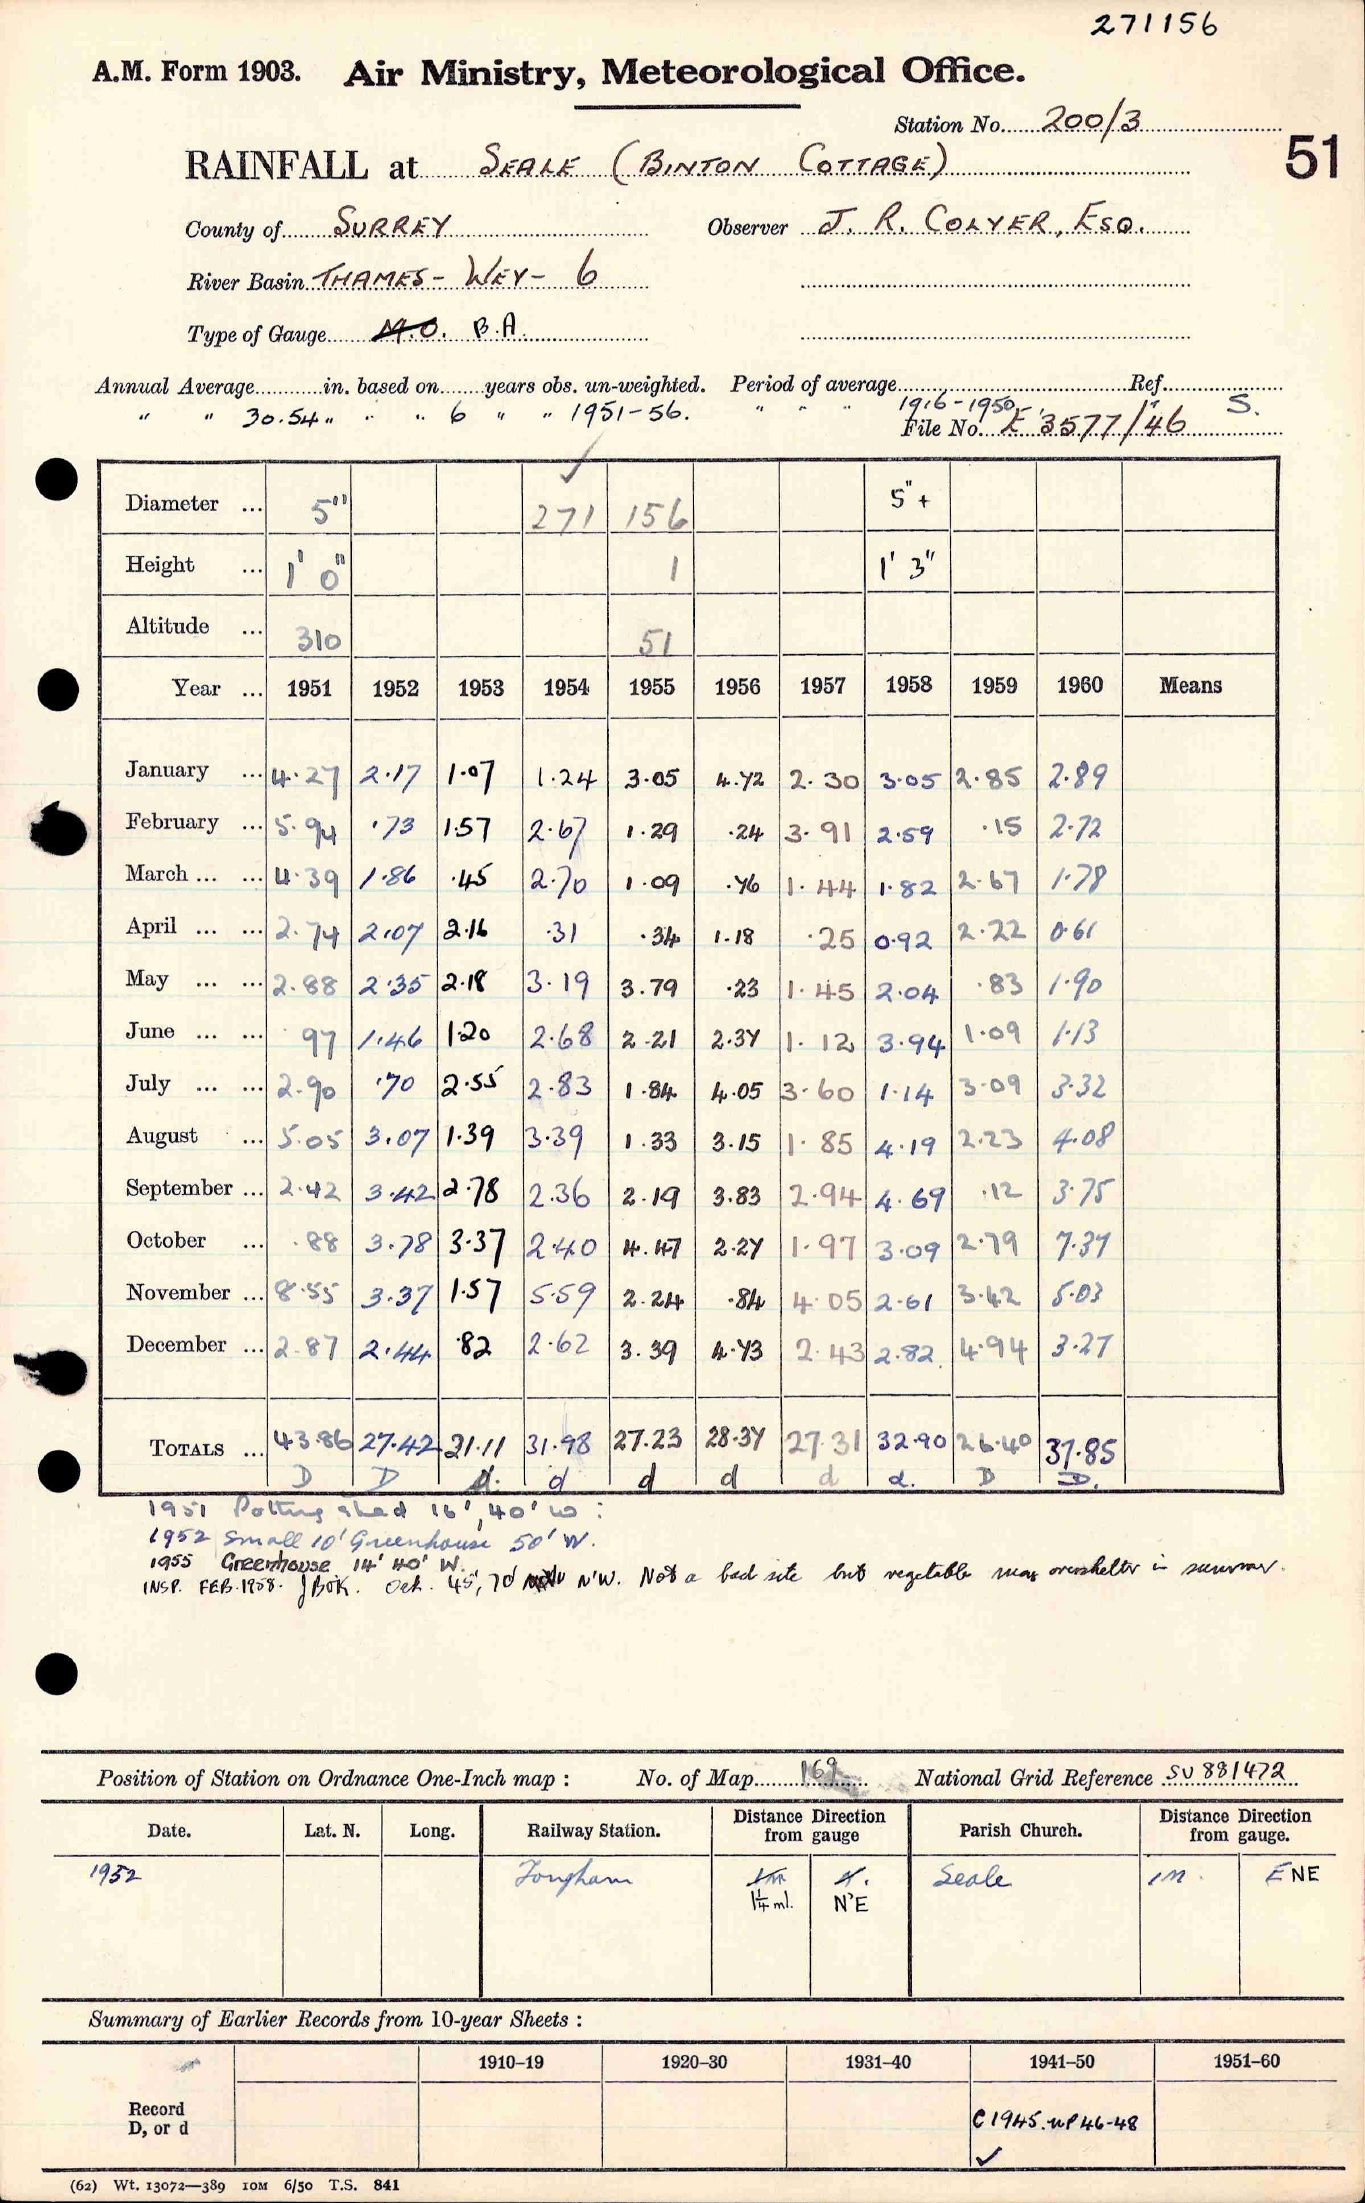 271156
A.M. Form 1903. Air Ministry, Meteorological Office.
Station No. 200/3
51
RAINFALL at SEALE (BINTON COTTAGE)
County of SURREY Observer J. R. COLYER, ESQ.
River Basin THAMES - WEY - 6
Type of Gauge M.O. B.A.
Annual Average in. based on years obs. un-weighted. Period of average Ref.
" " 30.54 " " " 6 " " 1951-56. " " " 1916-1950 " S.
File No. E 3577/46
Diameter ... 5" 271 156 5"+
Height ... 1' 0" 1 1' 3"
Altitude ... 310 51
Year ... 1951 1952 1953 1954 1955 1956 1957 1958 1959 1960 Means
January ... 4.27 2.17 1.07 1.24 3.05 4.72 2.30 3.05 2.85 2.89
February ... 5.94 .73 1.57 2.67 1.29 .24 3.91 2.59 .15 2.72
March ... ... 4.39 1.86 .45 2.70 1.09 .76 1.44 1.82 2.67 1.78
April ... ... 2.74 2.07 2.16 .31 .34 1.18 .25 0.92 2.22 0.61
May ... ... 2.88 2.35 2.18 3.19 3.79 .23 1.45 2.04 .83 1.90
June ... ... .97 1.46 1.20 2.68 2.21 2.37 1.12 3.94 1.09 1.13
July ... ... 2.90 .70 2.55 2.83 1.84 4.05 3.60 1.14 3.09 3.32
August ... 5.05 3.07 1.39 3.39 1.33 3.15 1.85 4.19 2.23 4.08
September ... 2.42 3.42 2.78 2.36 2.19 3.83 2.94 4.69 .12 3.75
October ... .88 3.78 3.37 2.40 4.47 2.27 1.97 3.09 2.79 7.37
November ... 8.55 3.37 1.57 5.59 2.24 .84 4.05 2.61 3.42 5.03
December ... 2.87 2.44 .82 2.62 3.39 4.73 2.43 2.82 4.94 3.27
TOTALS ... 43.86 27.42 21.11 31.98 27.23 28.37 27.31 32.90 26.40 37.85
D D d. d d d d d. D D.
1951 Potting shed 16', 40' W :
1952 Small 10' Greenhouse 50' W.
1955 Greenhouse 14' 40' W.
INSP. FEB. 1958. Och. 45', 70' N'W. Not a bad site but vegetable may overshelter in summer.
Position of Station on Ordnance One-Inch map : No. of Map 169 National Grid Reference SU 881472
Date. Lat. N. Long. Railway Station. Distance Direction from gauge Parish Church. Distance Direction from gauge.
1952 Tongham 1m N. Seale 1M. ENE
1¼ ml. N'E
Summary of Earlier Records from 10-year Sheets :
1910–19 1920–30 1931–40 1941–50 1951–60
Record
D, or d
C 1945. NP 46-48
✓
(62) Wt. 13072—389 10M 6/50 T.S. 841